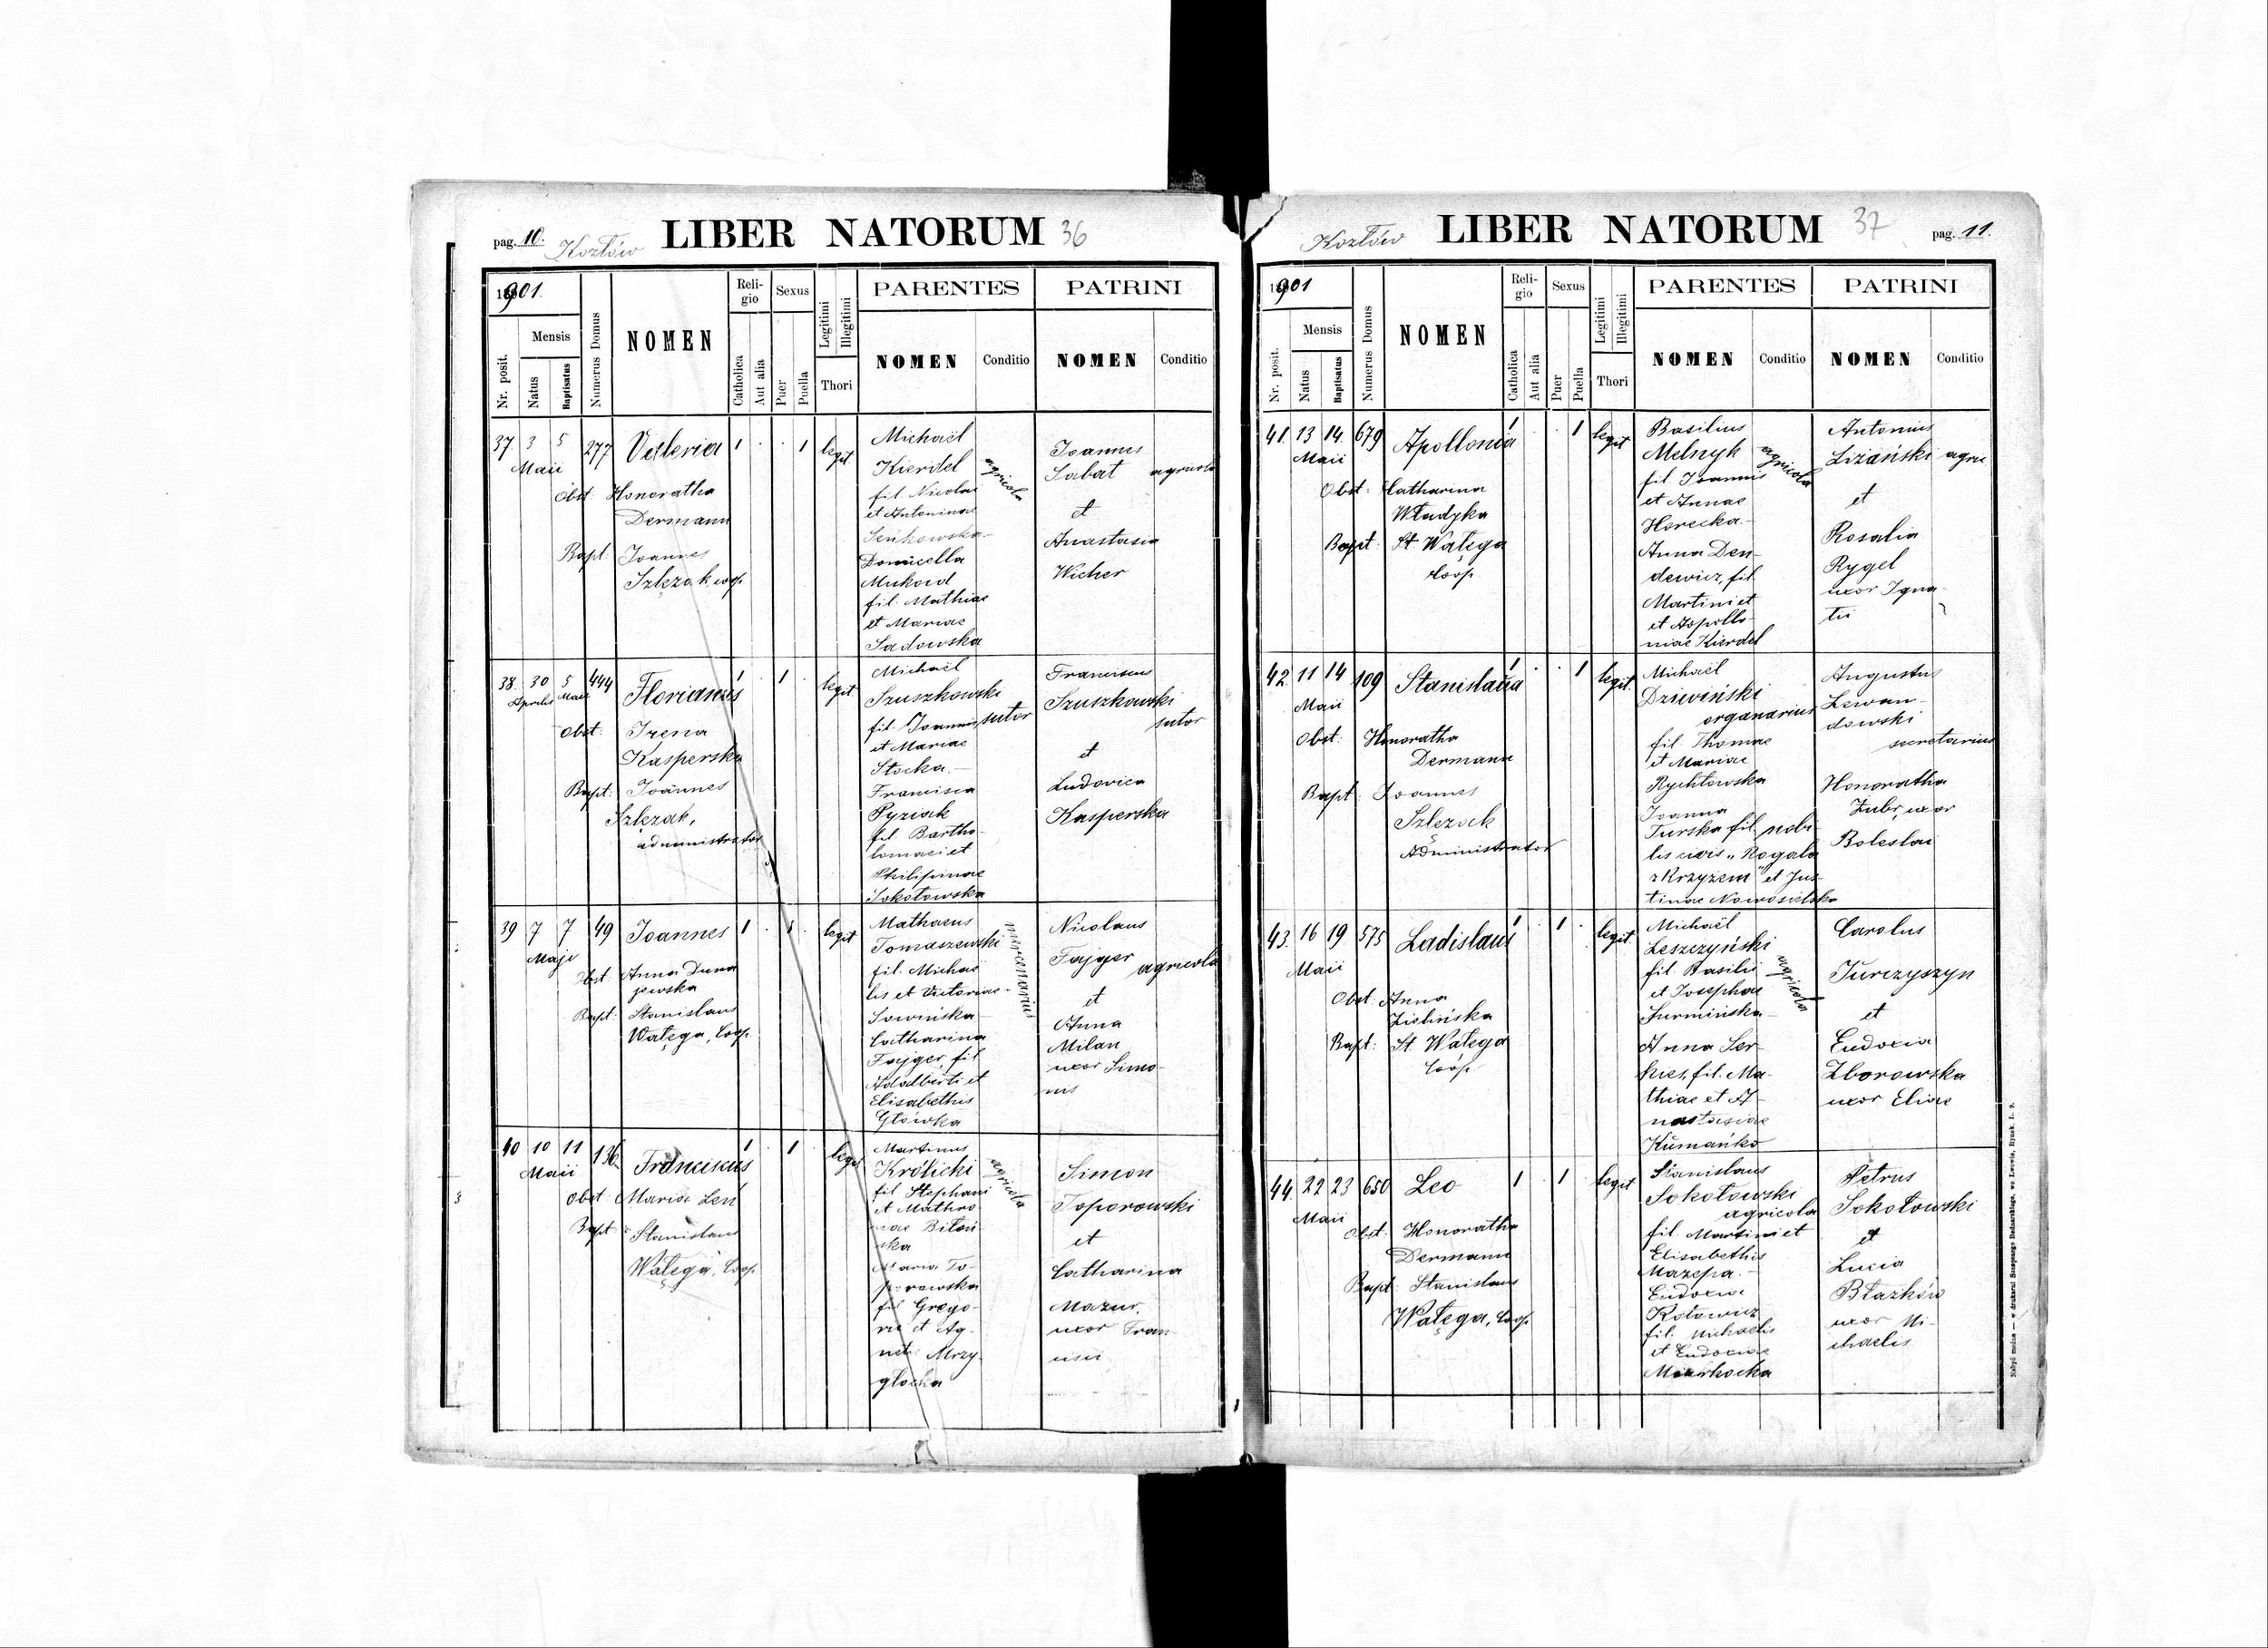 pag. 10.
Kozłów
LIBER NATORUM
36
1901.
Nr. posit.
Mensis
Natus
Baptisatus
Numerus Domus
NOMEN
Religio
Catholica
Aut alia
Sexus
Puer
Puella
Legitimi
Illegitimi
Thori
PARENTES
NOMEN
Conditio
PATRINI
NOMEN
Conditio
37 3 5 277 Valeria 1 1 legit
Maii
Obst Honoratha
Dermann
Bapt. Joannes
Szlęzak coop
Michaël
Kierdel agricola
fil Nicolai
et Antoninae
Senkowska
Domicella
Mukowd
fil. Mathiae
et Mariae
Sadowska
Joannes
Sabat agricola
et
Anastasia
Wicher
38. 30 5 444 Florianus 1 1 legit
Aprilis Maii
Obst: Irena
Kasperska
Bapt: Joännes
Szlęzak,
administrator
Michaël
Szuszkowski
fil. Joannis sutor
et Mariae
Stocka.
Francisca
Pyziak
fil. Bartho-
lomaei et
Philipinae
Sokołowska
Franciscus
Szuszkowski
sutor
et
Ludovica
Kasperska
39 7 7 49 Joannes 1 1 legit
Maji
Obst Anna Duna
jewska
Bapt: Stanislaus
Wałęga, Coop.
Mathaeus
Tomaszewski mercenarius
fil. Michaë
lis et Victoriae
Sowińska
Catharina
Fajger fil
Adalberti et
Elisabethis
Główka
Nicolaus
Fajger agricola
et
Anna
Milan
uxor Simo-
nis
40 10 11 136 Franciscus 1 1 legit
Maii
Obst Maria Leń
Bapt: Stanislaus
Wałęga, Coop
Martinus
Królicki agricola
fil Stephani
et Mathro
nae Biłoń
ska
Maria To-
porowska
fil Grego-
rii et Ag-
netis Mrzy-
głocka
Simon
Toporowski
et
Catharina
Mazur,
uxor Fran
cisci
Kozłów
LIBER NATORUM
37
pag. 11.
1901
Nr. posit.
Mensis
Natus
Baptisatus
Numerus Domus
NOMEN
Religio
Catholica
Aut alia
Sexus
Puer
Puella
Legitimi
Illegitimi
Thori
PARENTES
NOMEN
Conditio
PATRINI
NOMEN
Conditio
41. 13 14. 679 Apollonia 1 1 legit
Maii
Obst: Catharina
Władyka
Bapt: St. Wałęga
Coop
Basilius
Melnyk agricola
fil Joannis
et Annae
Horecka.
Anna Den-
dewicz, fil
Martini et
et Apollo-
niae Kierdel
Antonius
Liżański agric
et
Rosalia
Rygel
uxor Igna-
tii
42. 11 14 109 Stanislaüa 1 1 legit.
Maii
Obst: Honoratha
Dermann
Bapt: Joannes
Szlęzak
Administrator
Michaël
Dziwiński
organarius
fil. Thomae
et Mariae
Rychtowska
Joanna
Turska fil. nobi-
lis civis „Rogala
z Krzyżem" et Jus-
tinae Nowosielska
Augustus
Lewan-
dowski
secretarius
Honoratha
Zubr, uxor
Boleslai
43. 16 19 575 Ladislaus 1 1 legit
Maii
Obst: Anna
Zielińska
Bapt: St. Wałęga
Coop.
Michaël
Leszczyński
fil. Basilii agricola
et Josephae
Surmińska
Anna Ser-
kies, fil. Ma-
thiae et A-
nastasiae
Kumańko
Carolus
Jurczyszyn
et
Eudoxia
Zborowska
uxor Eliae
44. 22 23 650 Leo 1 1 legit
Maii
Obst. Honoratha
Dermann
Bapt Stanislaus
Wałęga, Coop.
Stanislaus
Sokołowski
agricola
fil. Martini et
Elisabethis
Mazepa.
Eudoxia
Kotowicz
fil. Michaelis
et Eudoxiae
Petrus
Sokołowski
et
Lucia
Błażków
uxor Mi-
chaelis